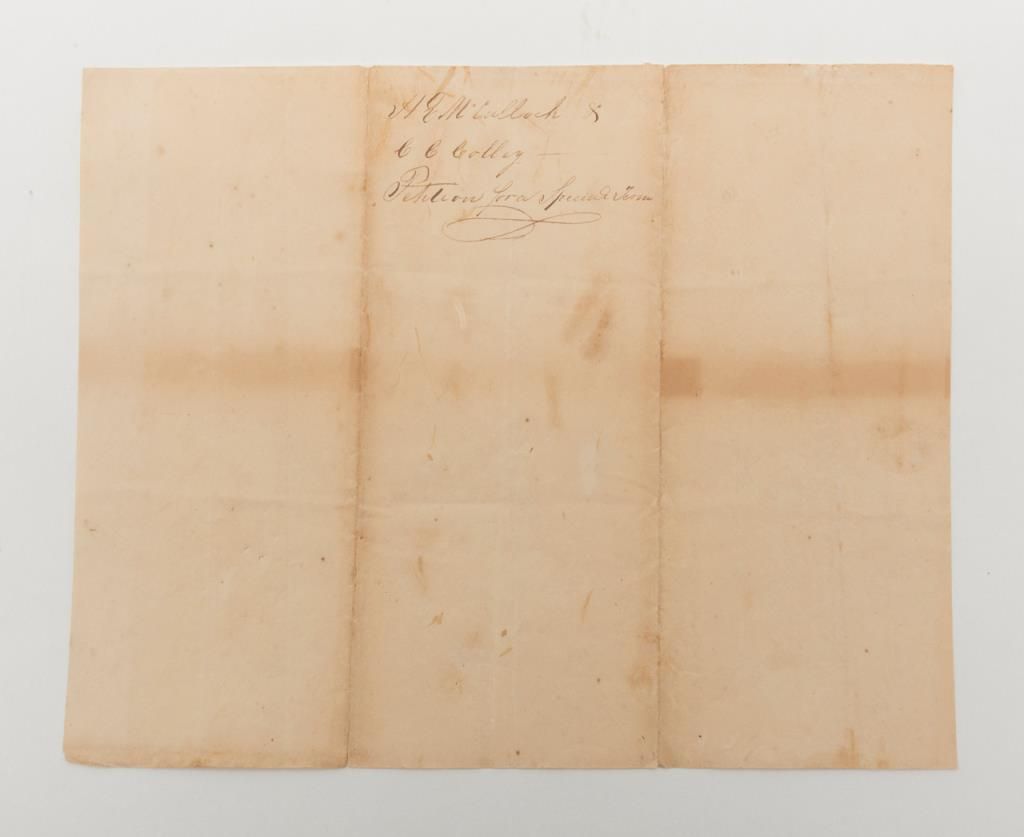 H E McCulloch &
C C Colley —
Petition for a Special Term